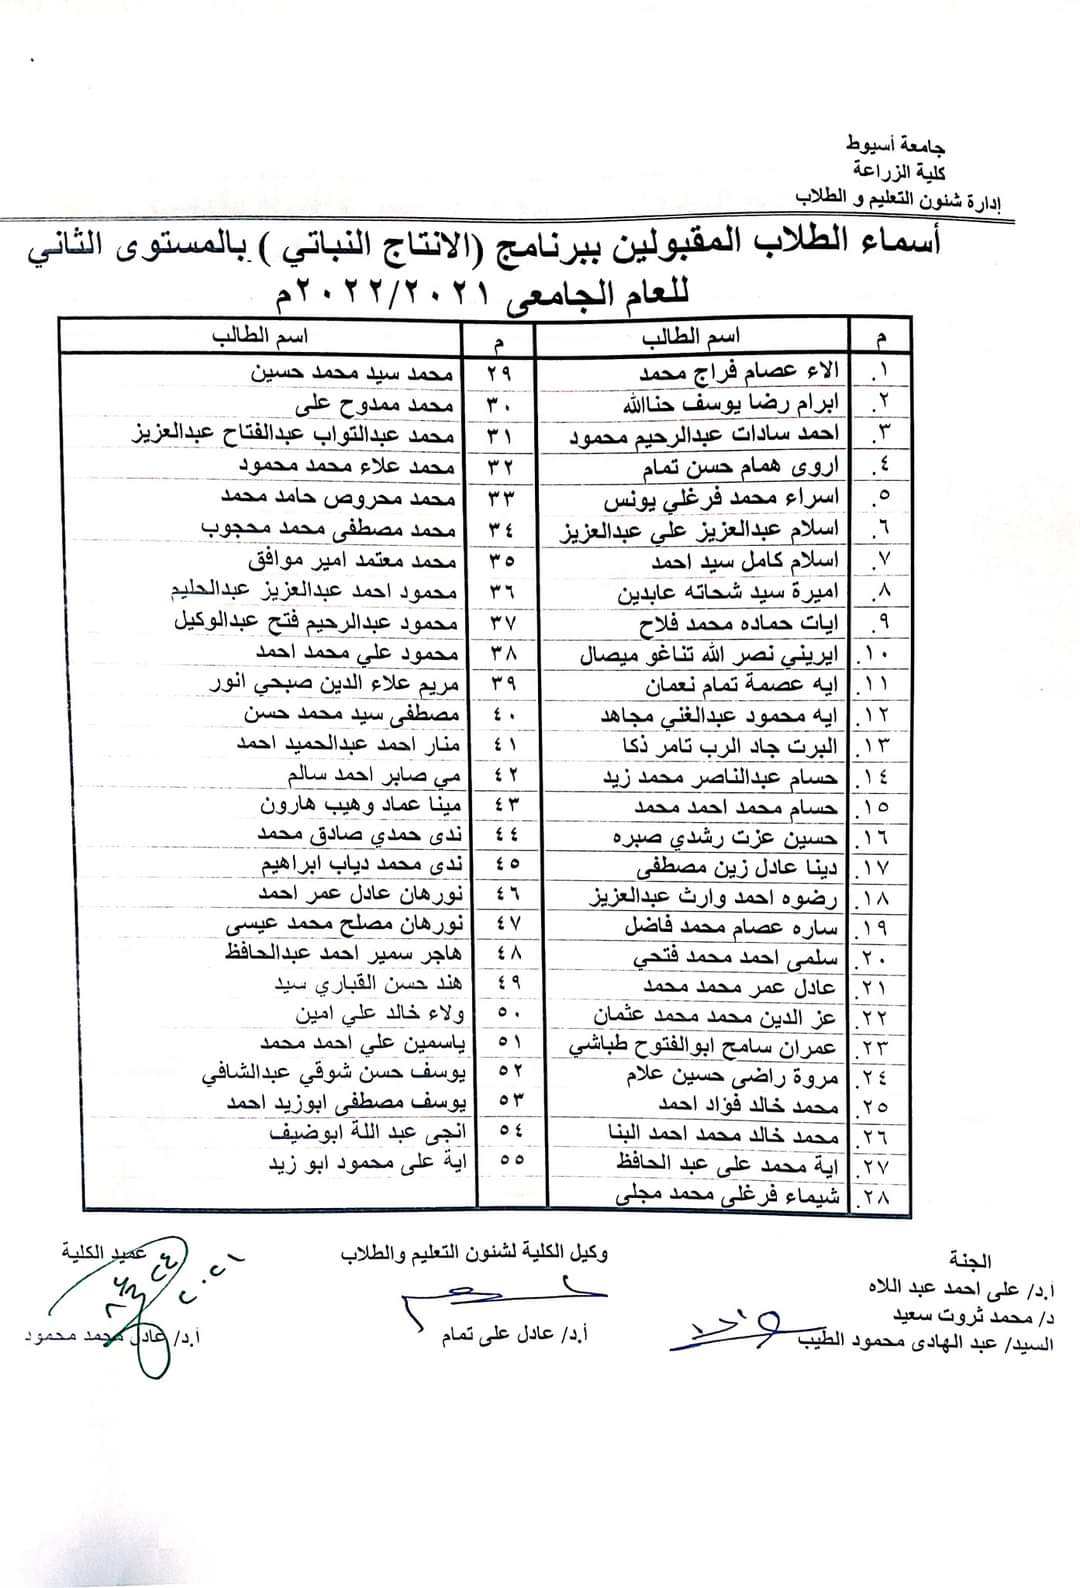 جامعة أسيوط
كلية الزراعة
إدارة شئون التعليم و الطلاب
أسماء الطلاب المقبولين ببرنامج (الانتاج النباتي ) بالمستوى الثاني
للعام الجامعى ٢٠٢٢/٢٠٢١م
م اسم الطالب م اسم الطالب
١. الاء عصام فراج محمد ٢٩ محمد سيد محمد حسين
٢. ابرام رضا يوسف حناالله ٣٠ محمد ممدوح على
٣. احمد سادات عبدالرحيم محمود ٣١ محمد عبدالتواب عبدالفتاح عبدالعزيز
٤. اروى همام حسن تمام ٣٢ محمد علاء محمد محمود
٥. اسراء محمد فرغلي يونس ٣٣ محمد محروص حامد محمد
٦. اسلام عبدالعزيز علي عبدالعزيز ٣٤ محمد مصطفى محمد محجوب
٧. اسلام كامل سيد احمد ٣٥ محمد معتمد امير موافق
٨. اميرة سيد شحاته عابدين ٣٦ محمود احمد عبدالعزيز عبدالحليم
٩. ايات حماده محمد فلاح ٣٧ محمود عبدالرحيم فتح عبدالوكيل
١٠. ايريني نصر الله تناغو ميصال ٣٨ محمود علي محمد احمد
١١. ايه عصمة تمام نعمان ٣٩ مريم علاء الدين صبحي انور
١٢. ايه محمود عبدالغني مجاهد ٤٠ مصطفى سيد محمد حسن
١٣. البرت جاد الرب تامر ذكا ٤١ منار احمد عبدالحميد احمد
١٤. حسام عبدالناصر محمد زيد ٤٢ مي صابر احمد سالم
١٥. حسام محمد احمد محمد ٤٣ مينا عماد وهيب هارون
١٦. حسين عزت رشدي صبره ٤٤ ندى حمدي صادق محمد
١٧. دينا عادل زين مصطفى ٤٥ ندى محمد دياب ابراهيم
١٨. رضوه احمد وارث عبدالعزيز ٤٦ نورهان عادل عمر احمد
١٩. ساره عصام محمد فاضل ٤٧ نورهان مصلح محمد عيسى
٢٠. سلمى احمد محمد فتحي ٤٨ هاجر سمير احمد عبدالحافظ
٢١. عادل عمر محمد محمد ٤٩ هند حسن القباري سيد
٢٢. عز الدين محمد محمد عثمان ٥٠ ولاء خالد علي امين
٢٣. عمران سامح ابوالفتوح طباشي ٥١ ياسمين علي احمد محمد
٢٤. مروة راضى حسين علام ٥٢ يوسف حسن شوقي عبدالشافي
٢٥. محمد خالد فؤاد احمد ٥٣ يوسف مصطفى ابوزيد احمد
٢٦. محمد خالد محمد احمد البنا ٥٤ انجى عبد اللة ابوضيف
٢٧. اية محمد على عبد الحافظ ٥٥ اية على محمود ابو زيد
٢٨. شيماء فرغلى محمد مجلى
الجنة
أ.د/ على احمد عبد اللاه
د/ محمد ثروت سعيد
السيد/ عبد الهادى محمود الطيب
وكيل الكلية لشئون التعليم والطلاب
أ.د/ عادل على تمام
عميد الكلية
أ.د/ عادل محمد محمود